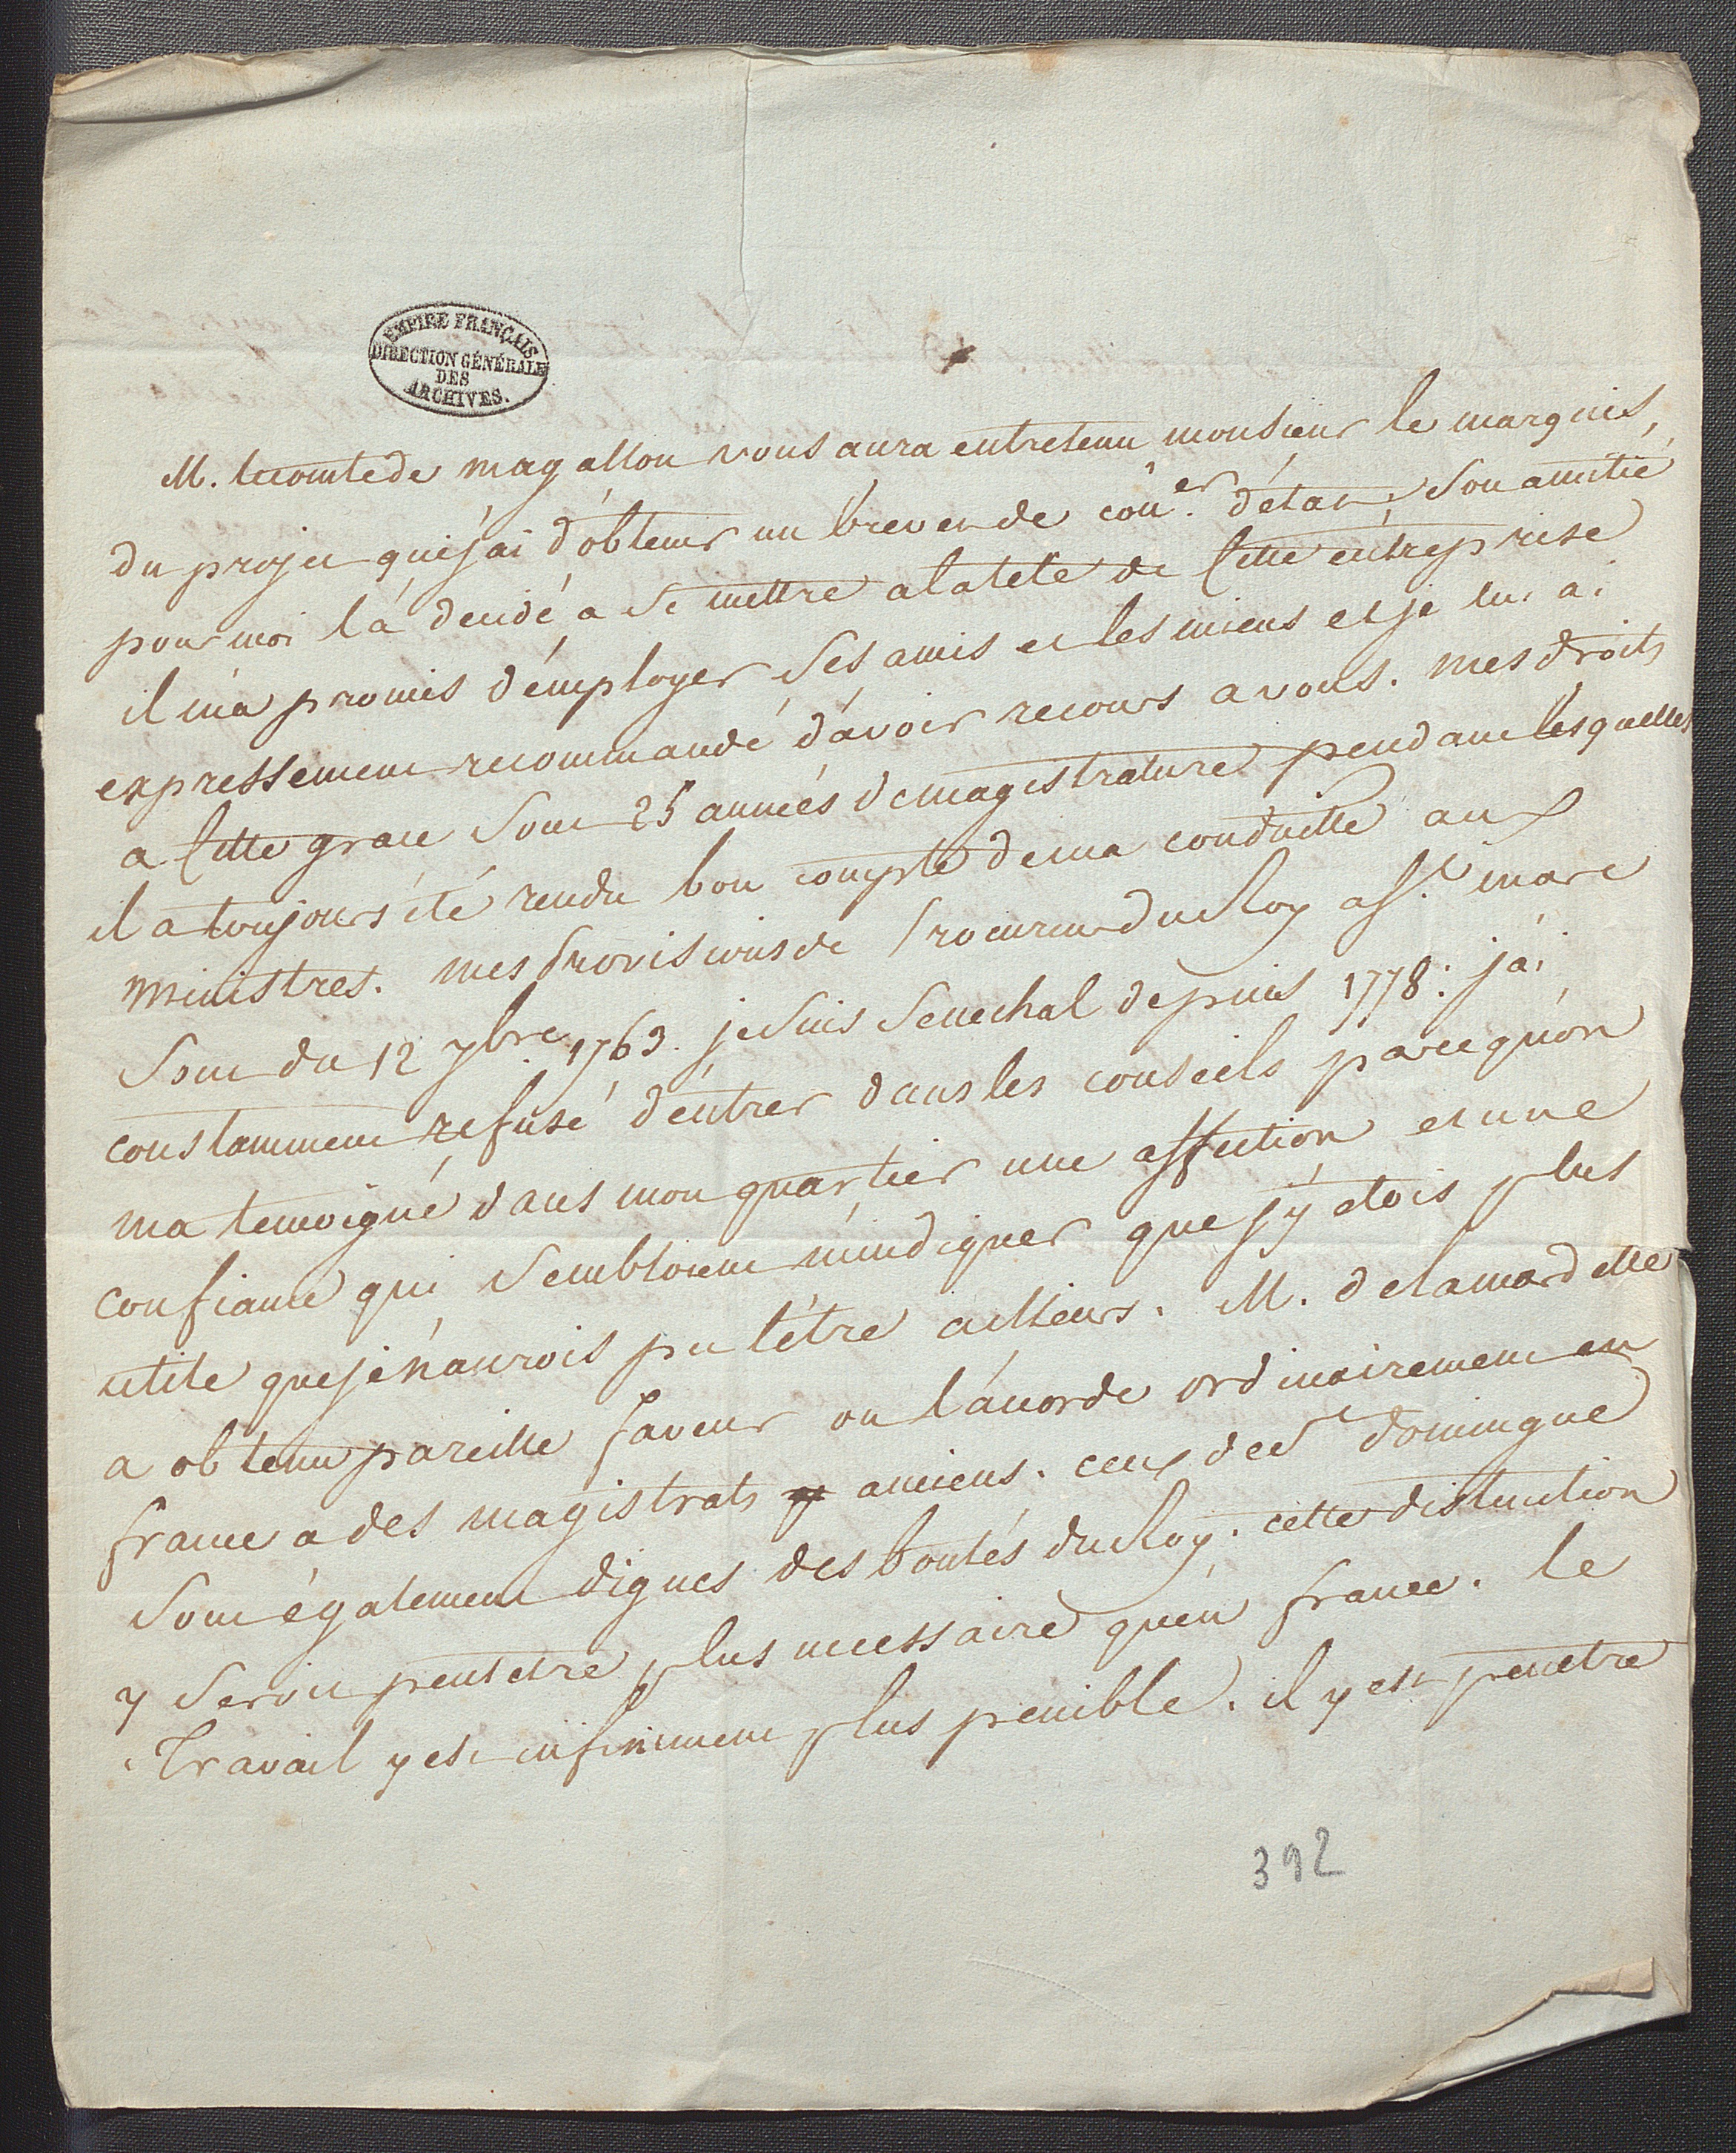 EMPIRE FRANÇAIS
DIRECTION GÉNÉRALE
DES
ARCHIVES.
M. le comte de magallon vous aura entretenu monsieur le marquis,
du projet que j'ai d'obtenir un brevet de con.er d'état, son amitié
pour moi l'a decidé a se mettre a la tete de cette entreprise
il m'a promis d'employer ses amis et les miens et je lui ai
expressement recommandé d'avoir recours a vous. mes droits
a cette grace sont 25 années de magistrature pendant lesquelles
il a toujours été rendu bon compte de ma conduitte aux
ministres. mes provisions de procureur du Roy a St. marc
sont du 12 7bre. 1763. je suis senechal depuis 1778: j'ai
constamment refusé d'entrer dans les conseils parcequ'on
ma temoigné dans mon quartier une affection et une
confiance qui sembloient m'indiquer que j'y etois plus
utile que je n'aurois pu l'être ailleurs. M. delamardelle
a obtenu pareille faveur on l'acorde ordinairement en
france a des magistrats anciens. ceux de St domingue
sont également dignes des bontés du Roy. cette distinction
y seroit peutetre plus necessaire qu'en france. le
travail y est infiniment plus penible. il y est peutetre
392